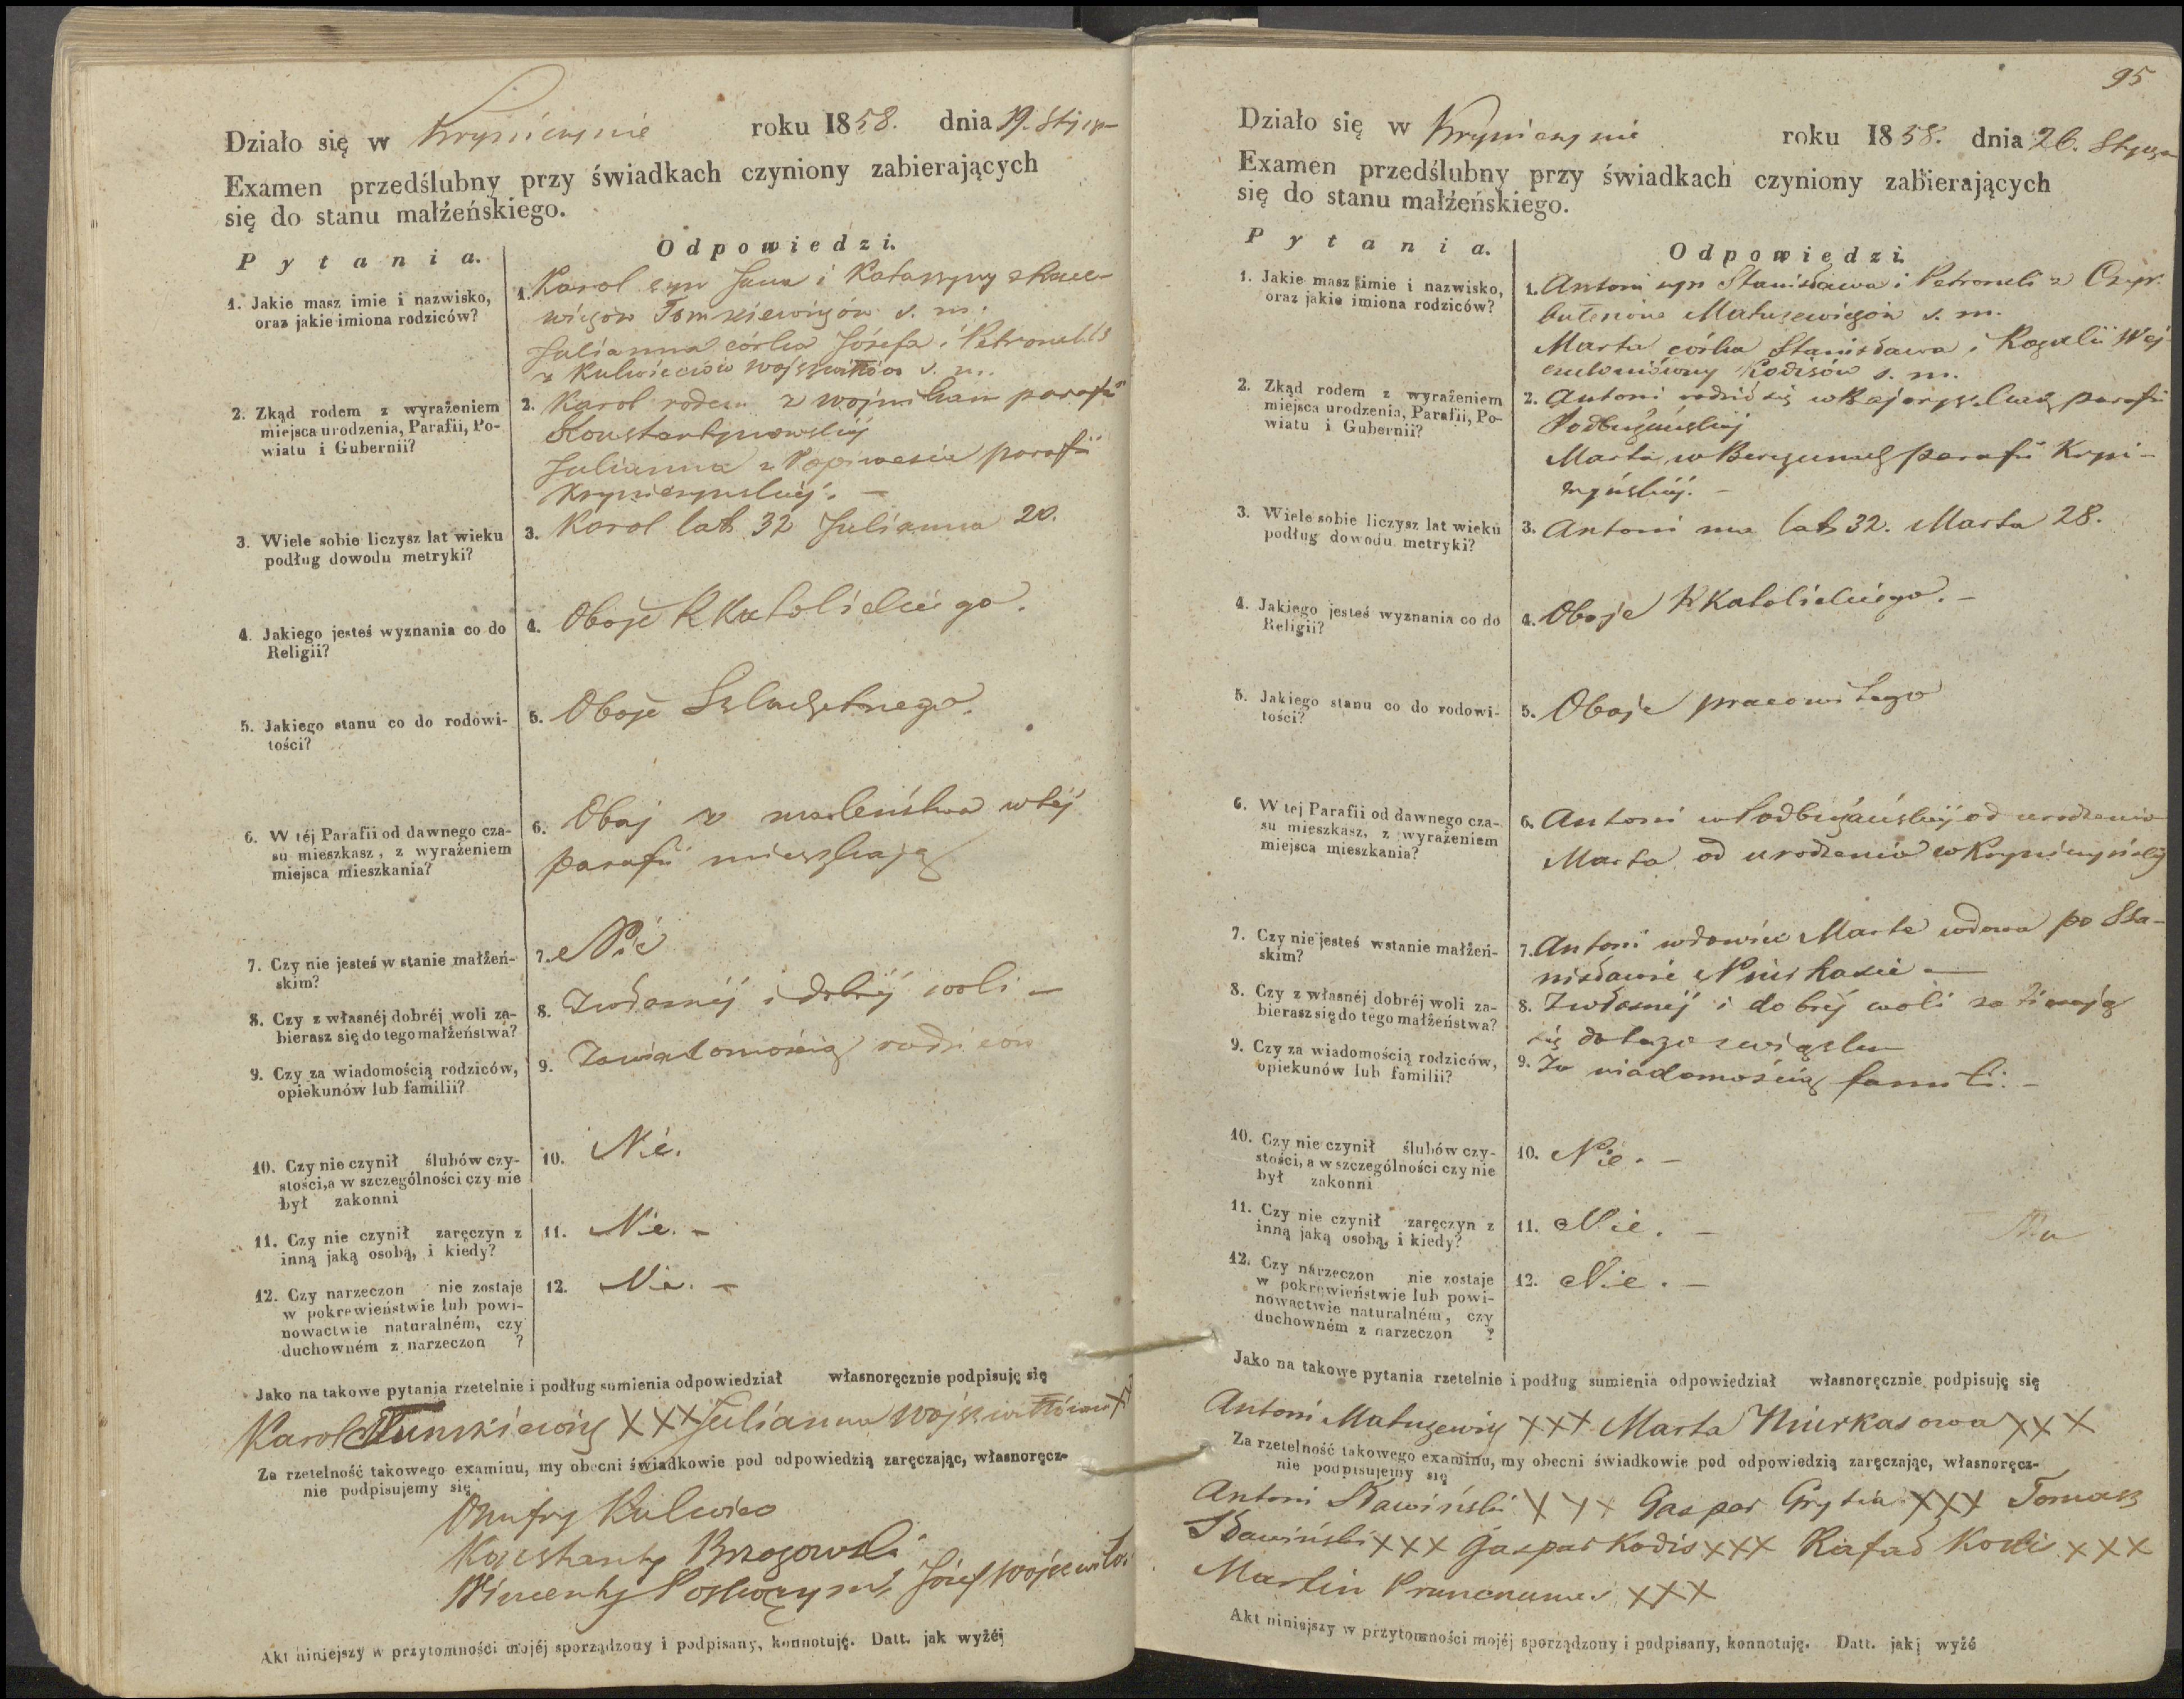 Działo się w Krypiczynie roku 1858. dnia 19. Stycz-
Examen przedślubny przy świadkach czyniony zabierających
się do stanu małżeńskiego.
P y t a n i a.
O d p o w i e d z i.
1. Jakie masz imie i nazwisko,
oraz jakie imiona rodziców?
1. Karol syn Jana i Katarzyny z
Tomkiewiczów s. m.
Julianna córka Józefa i Petronelli
z Kulwieców s. m.
2. Zkąd rodem z wyrażeniem
miejsca urodzenia, Parafii, Po-
wiatu i Gubernii?
2. Karol rodem z parafii
Konstantynowskiej
Julianna z parafii
3. Wiele sobie liczysz lat wieku
podług dowodu metryki?
3. Karol lat 32 Julianna 20.
4. Jakiego jesteś wyznania co do
Religii?
4. Oboje R Katolickiego.
5. Jakiego stanu co do rodowi-
tości?
5. Oboje Szlachetnego.
6. W téj Parafii od dawnego cza-
su mieszkasz, z wyrażeniem
miejsca mieszkania?
6. Obaj z maleństwa w téj
parafii mieszkają
7. Czy nie jesteś w stanie małżeń-
skim?
7. Nie
8. Czy z własnéj dobréj woli za-
bierasz się do tego małżeństwa?
8. Zwłasnéj i dobréj woli -
9. Czy za wiadomością rodziców,
opiekunów lub familii?
9. Zawiadomością rodziców
10. Czy nie czynił ślubów czy-
stości, a w szczególności czy nie
był zakonni
10. Nie.
11. Czy nie czynił zaręczyn z
inną jaką osobą, i kiedy?
11. Nie. -
12. Czy narzeczon nie zostaje
w pokrewieństwie lub powi-
nowactwie naturalném, czy
duchowném z narzeczon ?
12. Nie. -
Jako na takowe pytania rzetelnie i podług sumienia odpowiedział własnoręcznie podpisuję się
Karol XXX Julianna
Za rzetelność takowego examinu, my obecni świadkowie pod odpowiedzią zaręczając, własnoręcz-
nie podpisujemy się
Onufry Kulwiec
Konstanty Brzozowski
Wincenty Józef
Akt niniejszy w przytomności mojéj sporządzony i podpisany, konnotuję. Datt. jak wyżéj
95
Działo się w Krypiczynie roku 1858. dnia 26. Stycz
Examen przedślubny przy świadkach czyniony zabierających
się do stanu małżeńskiego.
P y t a n i a.
O d p o w i e d z i.
1. Jakie masz imie i nazwisko,
oraz jakie imiona rodziców?
1. Antoni syn Stanisława i Petroneli z
Matuzewiczów s. m.
Marta córka Stanisława i Rozalii
Kodisów s. m.
2. Zkąd rodem z wyrażeniem
miejsca urodzenia, Parafii, Po-
wiatu i Gubernii?
2. Antoni rodził się w parafii
Marta w parafii Krypi-
czyńskiéj. -
3. Wiele sobie liczysz lat wieku
podług dowodu metryki?
3. Antoni ma lat 32. Marta 28.
4. Jakiego jesteś wyznania co do
Religii?
4. Oboje R Katolickiego. -
5. Jakiego stanu co do rodowi-
tości?
5. Oboje pracowitego
6. W tej Parafii od dawnego cza-
su mieszkasz, z wyrażeniem
miejsca mieszkania?
6. Antoni w od urodzenia
Marta od urodzenia w Krypiczyńskiéj
7. Czy nie jesteś wstanie małżeń-
skim?
7. Antoni wdowiec Marta wdowa po Sta-
nisławie
8. Czy z własnéj dobréj woli za-
bierasz się do tego małżeństwa?
8. Zwłasnéj i dobréj woli zabierają
się do tego związku
9. Czy za wiadomością rodziców,
opiekunów lub familii?
9. Za wiadomością familii. -
10. Czy nie czynił ślubów czy-
stości, a w szczególności czy nie
był zakonni
10. Nie. -
11. Czy nie czynił zaręczyn z
inną jaką osobą, i kiedy?
11. Nie. -
12. Czy narzeczon nie zostaje
w pokrewieństwie lub powi-
nowactwie naturalném, czy
duchowném z narzeczon ?
12. Nie. -
Jako na takowe pytania rzetelnie i podług sumienia odpowiedział własnoręcznie podpisuję się
Antoni Matuzewicz XXX Marta XXX
Za rzetelność takowego examinu, my obecni świadkowie pod odpowiedzią zaręczając, własnoręcz-
nie podpisujemy się
Antoni Sławiński XXX Gaspar XXX Tomasz
Sławiński XXX Gaspar Kodis XXX Rafał Kodis XXX
Martin XXX
Akt niniejszy w przytomności mojéj sporządzony i podpisany, konnotuję. Datt. jakj wyżé